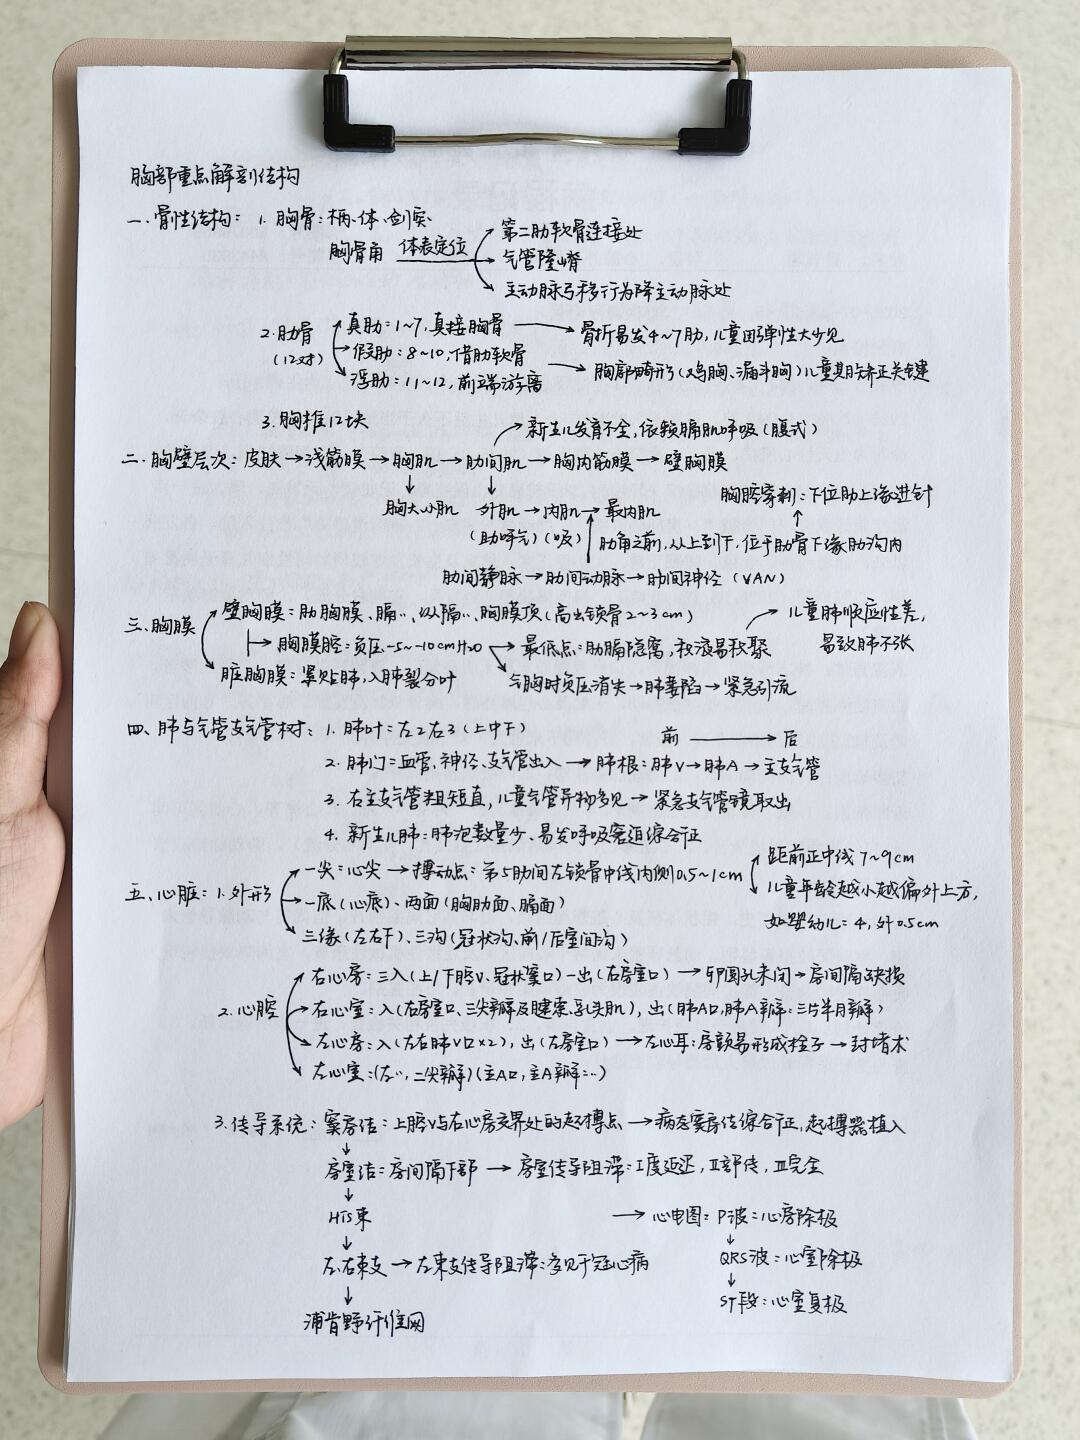 胸部重点解剖结构
一.骨性结构: 1. 胸骨:柄、体、剑突
胸骨角 体表定位 第二肋软骨连接处
气管隆嵴
主动脉弓移行为降主动脉处
2.肋骨 (12对) 真肋:1~7,直接胸骨 → 骨折易发4~7肋,儿童因弹性大少见
假肋:8~10,借肋软骨
浮肋:11~12,前端游离 → 胸廓畸形(鸡胸、漏斗胸)儿童期矫正关键
3.胸椎12块
→新生儿发育不全,依赖膈肌呼吸(腹式)
二.胸壁层次:皮肤→浅筋膜→胸肌→肋间肌→胸内筋膜→壁胸膜
胸腔穿刺:下位肋上缘进针
↓胸大小肌 ↓外肌→内肌→最内肌
(助呼气)(吸) 肋角之前,从上到下,位于肋骨下缘肋沟内
肋间静脉→肋间动脉→肋间神经(VAN)
三.胸膜 壁胸膜:肋胸膜、膈〃、纵隔〃、胸膜顶(高出锁骨2~3cm)
儿童肺顺应性差,
易致肺不张
胸膜腔:负压-5~-10cmH2O 最低点:肋膈隐窝,积液易积聚
脏胸膜:紧贴肺,入肺裂分叶 气胸时负压消失→肺萎陷→紧急引流
四、肺与气管支气管树:1.肺叶:左2右3(上中下)
前→后
2.肺门:血管、神经、支气管出入→肺根:肺V→肺A→主支气管
3.右主支气管粗短直,儿童气管异物多见→紧急支气管镜取出
4.新生儿肺:肺泡数量少、易发呼吸窘迫综合征
五、心脏:1.外形 一尖:心尖→搏动点:第5肋间左锁骨中线内侧0.5~1cm
距前正中线7~9cm
儿童年龄越小越偏外上方,
如婴幼儿:4,外0.5cm
一底(心底)、两面(胸肋面、膈面)
三缘(左右下)、三沟(冠状沟、前/后室间沟)
2.心腔 右心房:三入(上/下腔V、冠状窦口)一出(右房室口)→卵圆孔未闭→房间隔缺损
右心室:入(右房室口、三尖瓣及腱索、乳头肌),出(肺A口,肺A瓣:三片半月瓣)
左心房:入(左右肺V口×2),出(左房室口)→左心耳:房颤易形成栓子→封堵术
左心室:(左〃,二尖瓣)(主A口,主A瓣…)
3.传导系统:窦房结:上腔V与右心房交界处的起搏点→病态窦房结综合征,起搏器植入
↓
房室结:房间隔下部→房室传导阻滞:I度延迟,II部传,III完全
↓
HIS束 →心电图:P波:心房除极
↓ ↓
左、右束支→左束支传导阻滞:多见于冠心病 QRS波:心室除极
↓ ↓
ST段:心室复极
浦肯野纤维网